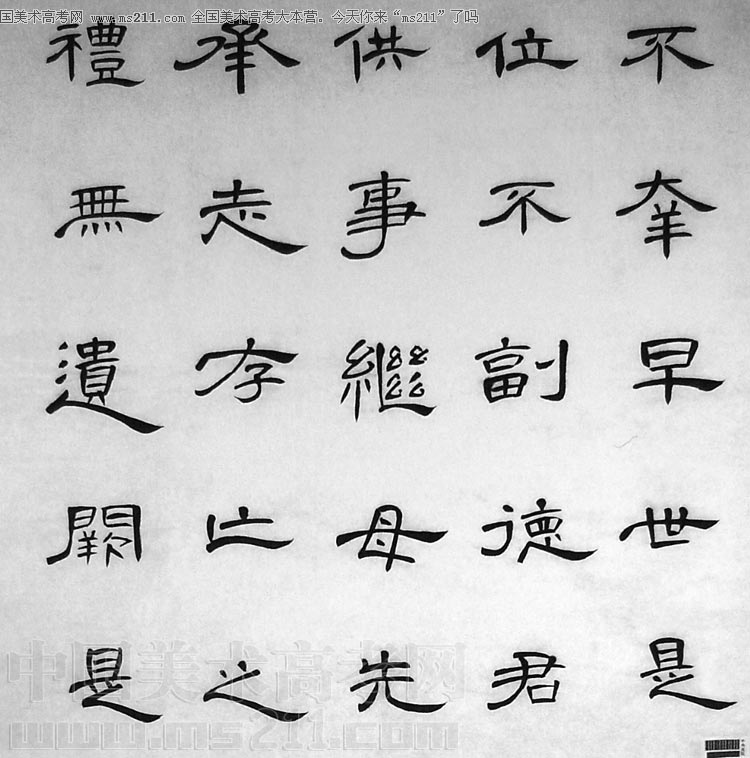 国美术高考网 www.ms211.com 全国美术高考大本营。今天你来“ms211”了吗
不幸早世是
位不副德君
供事繼母先
承志存亡之
禮無遺闕是
中国美术高考网
www.ms211.com